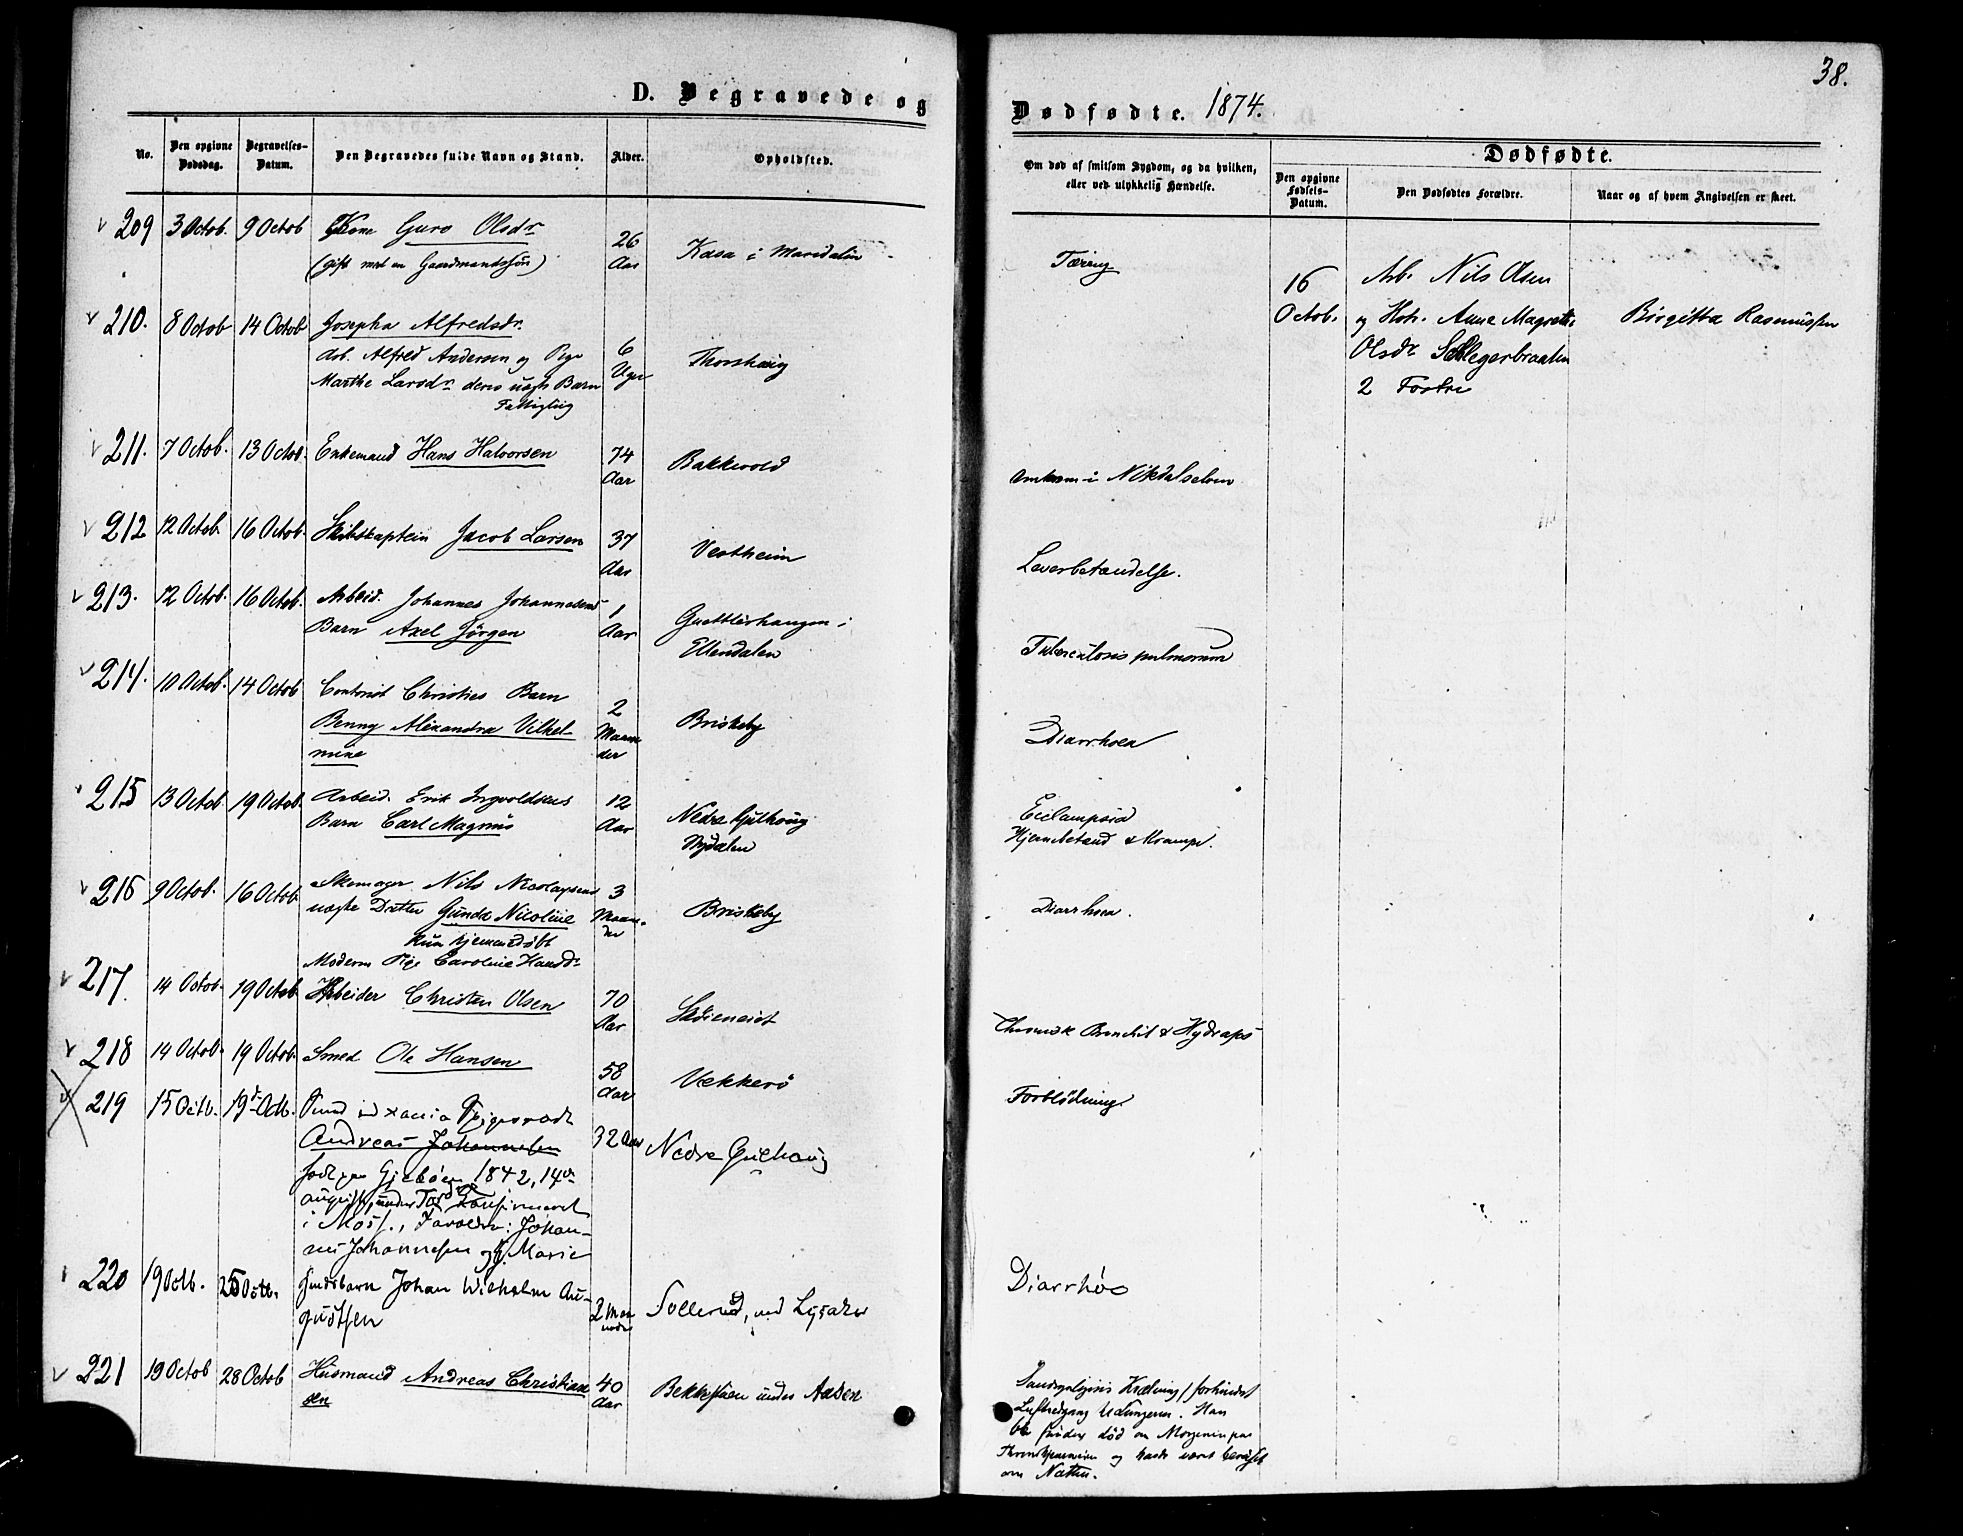 38.
D. Begravede og Dødfødte. 1874.
No.
Den opgivne Dødsdag.
Begravelses-Datum.
Den Begravedes fulde Navn og Stand.
Alder.
Opholdsted.
Om død af smitsom Sygdom, og da hvilken, eller ved ulykkelig Hændelse.
Dødfødte.
Den opgivne Fødsels-Datum.
Den Dødfødtes Forældre.
Naar og af hvem Angivelsen er skeet.
209 3 Octob. 9 Octob Kone Guro Olsdr 26 Aar
(gift med en Gaardmandssøn)
Tæring
16 Octob. Arb. Nils Olsen
og Hstr. Anne Magrethe
Olsdr
2 Fostre
Birgitta Rasmussen
210. 8 Octob 14 Octob Josepha Alfredsdr.
Arb. Alfred Andersen og Pige
Marthe Larsdr deres uægte Barn
Fattiglig
6 Uger
Thorshaug
211. 7 Octob. 13 Octob. Enkemand Hans Halvorsen 74 Aar Bakkevold
omkom i
212 12 Octob. 16 Octob. Skibskaptein Jacob Larsen 37 Aar Vestheim
Leverbetændelse.
213. 12 Octob. 16 Octob. Arbeid. Johannes Johannesens
Barn Axel Jörgen
1 Aar
i
Ellendalen
Tuberculosis pulmonum
214. 10 Octob. 14 Octob Christies Barn
Benny Alexandra Vilhel-
mine
2 Maaneder
Briskeby
Diarrhoea
215 13 Octob 19 Octob. Arbeid. Erik Ingvoldsens
Barn Carl Magnus
12 Aar
Nedre Gulhaug
Nydalen
Eclampsia
Hjernebetænd & Krampe.
216 9 Octob. 16 Octob Skomager Nils Nicolaysens
uægte Datter Gunda Nicoline
kun hjemmedøbt
Moderen Pige Caroline Hansdr
3 Maaneder
Briskeby
Diarrhoea.
217. 14 Octob. 19 Octob. Arbeider Christen Olsen 70 Aar
Chronisk Bronchit & Hydrops
218 14 Octob. 19 Octob. Smed Ole Hansen 58 Aar Vækkerö
Forblödning
219 15 Octb. 19 Octb.
Andreas Johannesen 32 Aar Nedre Gulhaug
1842, 14de
august,
i Moss., Forældre: Johan-
nes Johannesen og Marie
220 19 Octb. 25 Octb. Johan Wilhelm Au-
gustsen
2 Maaneder
Sollerud, ved Lysaker
Diarrhöe
221 19 Octob 28 Octob Husmand Andreas Christian
sen
40 Aar
under Aasen
forhindret
Luftadgang Lungerne. Han
blev funden död om Morgenen paa
og havde været beruset
om Natten.